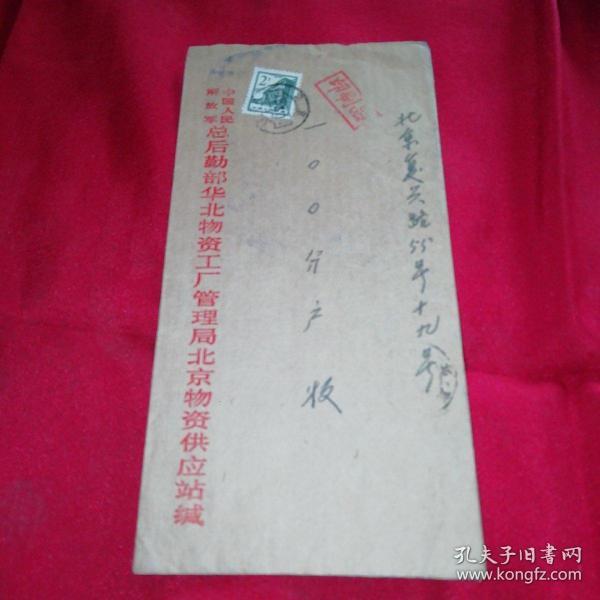 北京复兴路55号十九号
一〇〇分户 收
中国人民
解放军
总后勤部华北物资工厂管理局北京物资供应站缄
印刷品
2分
孔夫子旧书网
www.kongfz.com